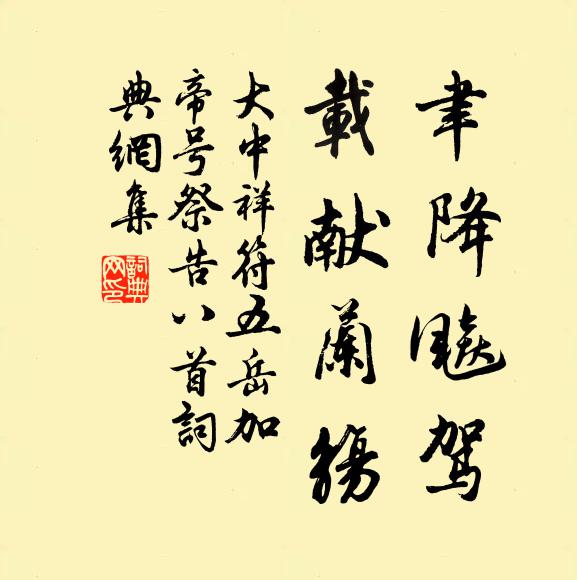 聿降飈駕
載献蘭觴
大中祥符五岳加
帝号祭告八首詞
典網集
詞典
网印